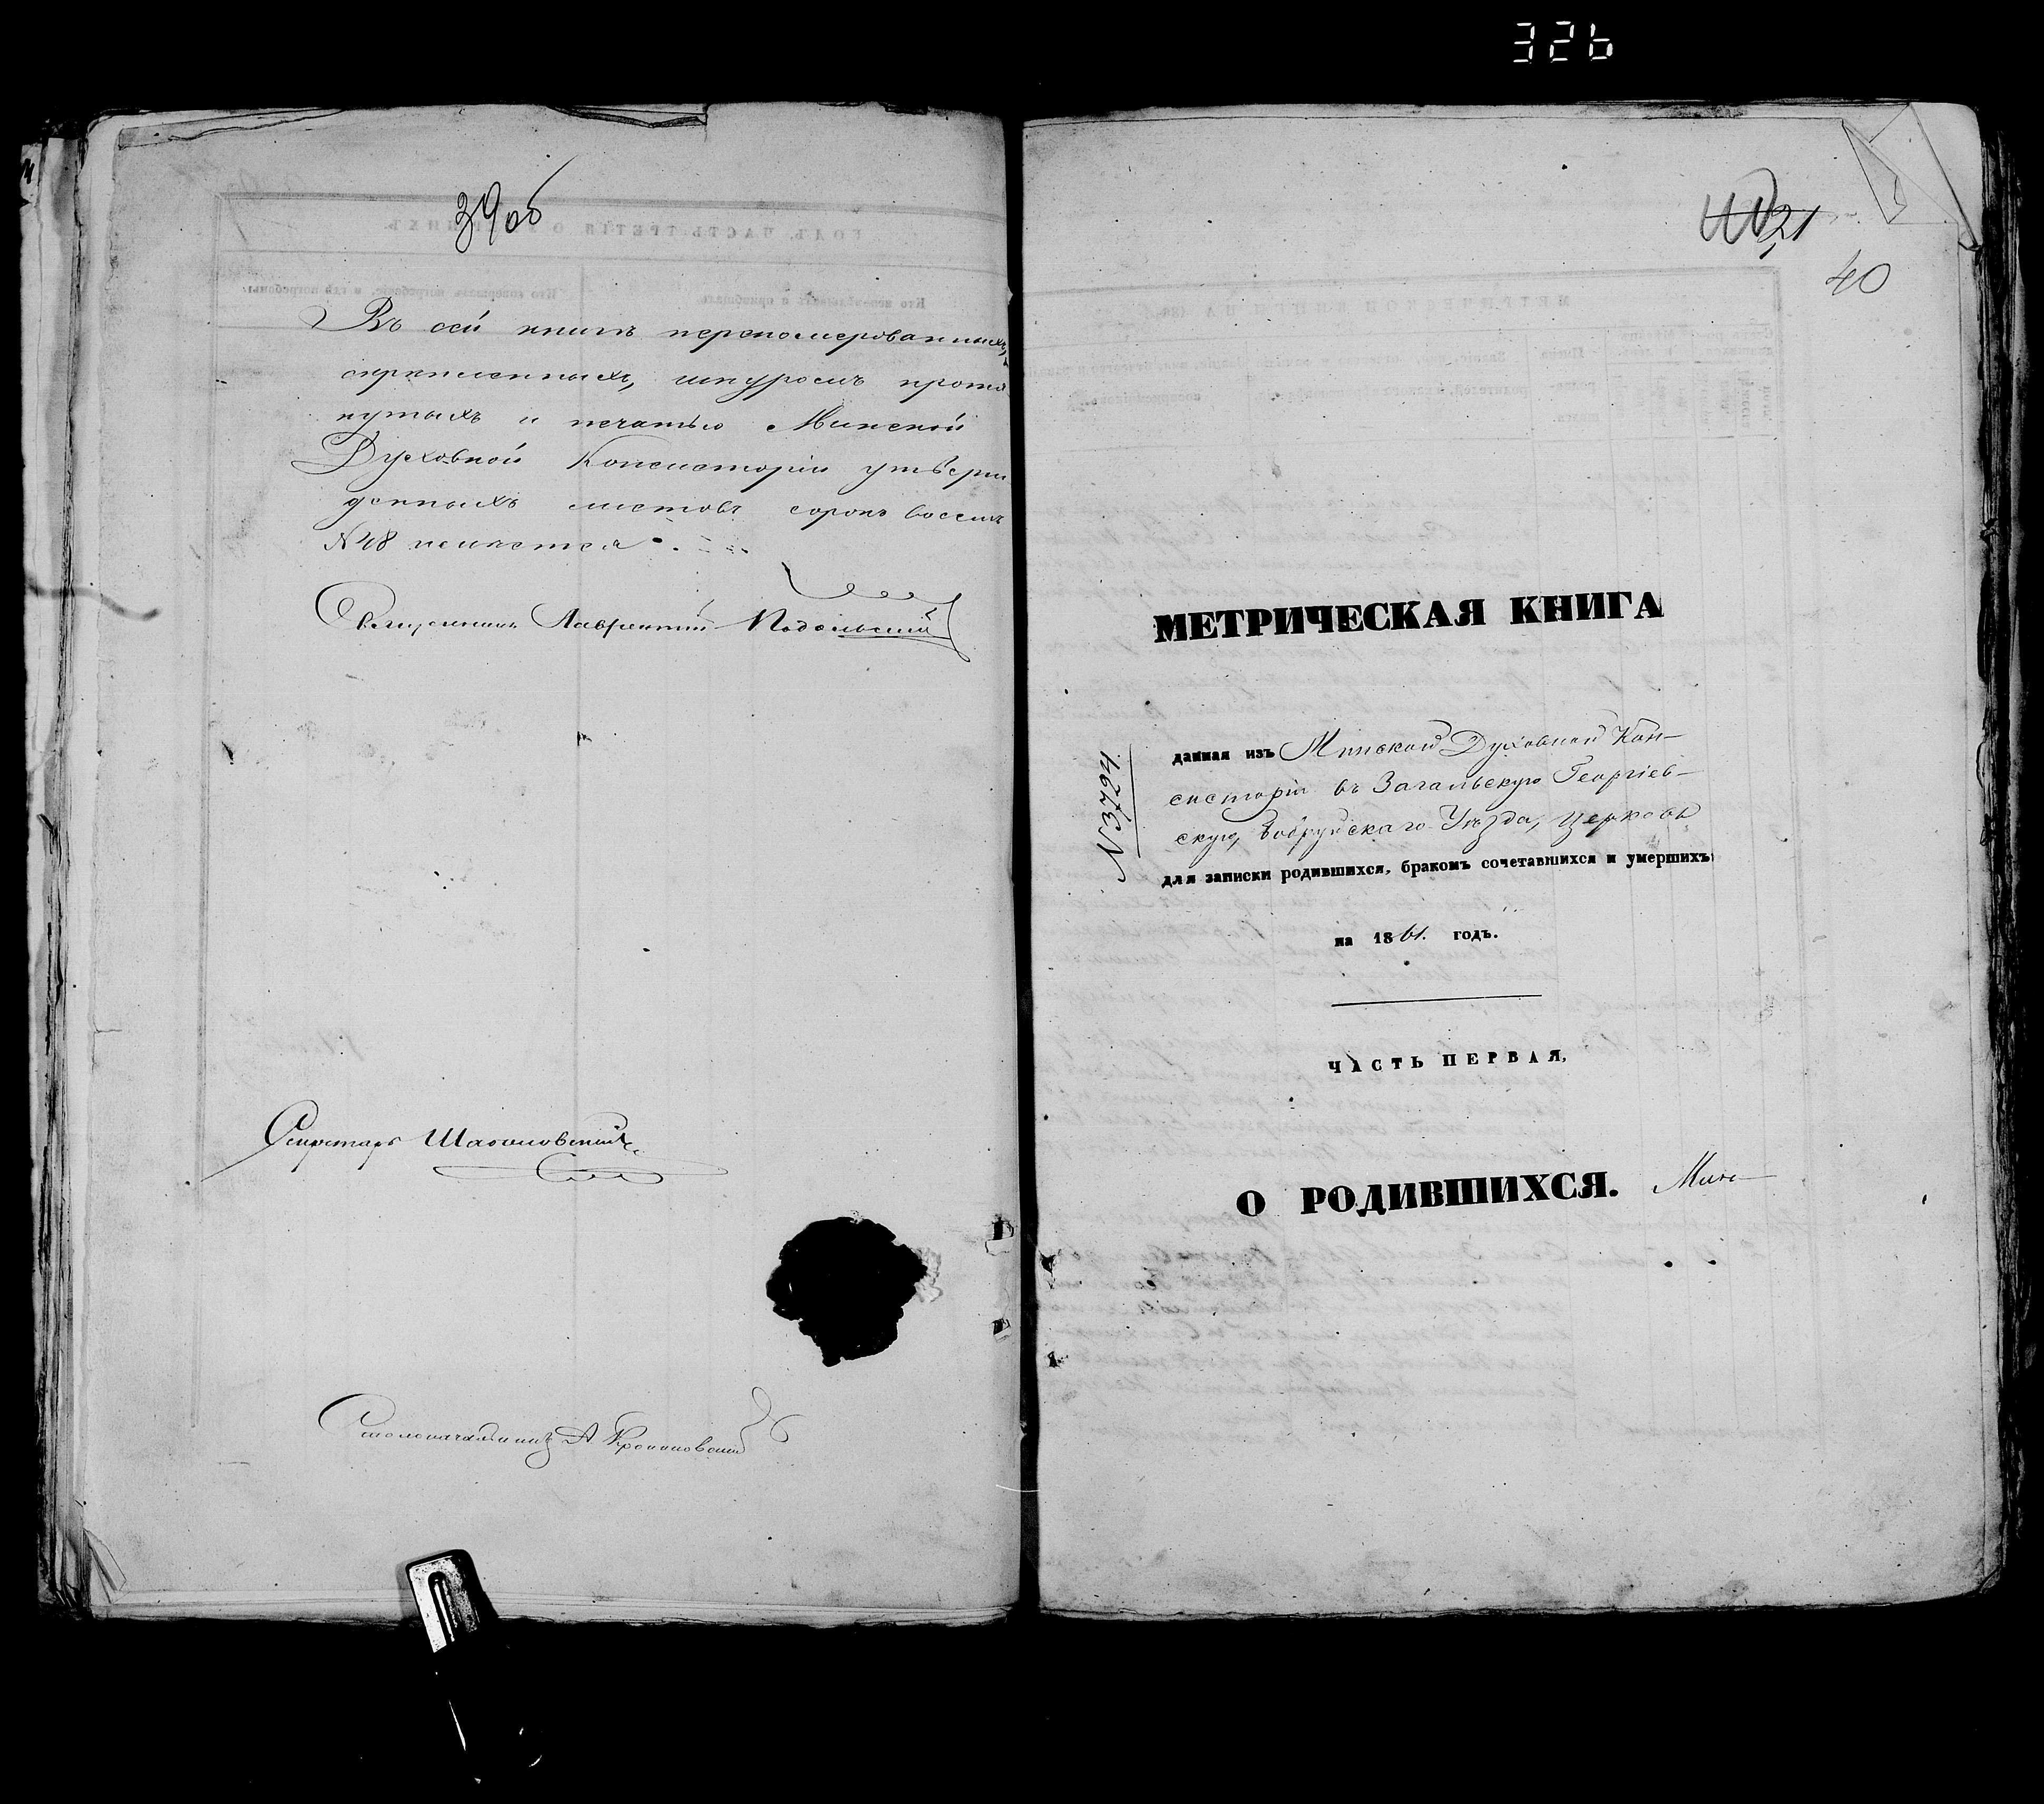 326
39 об
Въ сей книгѣ перепомерованныхъ,
скрѣпленныхъ, шнуромъ протя
нутыхъ и печатью Минской
Духовной Консисторіи утверж
денныхъ листовъ сорокъ восемь
№ 48 имѣется.
Священникъ Лаврентій Подольскій
Секретарь
Столоначальникъ А
21
40
МЕТРИЧЕСКАЯ КНИГА
№ 3724.
данная изъ Минской Духовной Кон-
систоріи въ Загальскую Георгіев-
скую, Бобруйскаго Уѣзда, церковь
для записки родившихся, бракомъ сочетавшихся и умершихъ
на 1861. годъ.
ЧАСТЬ ПЕРВАЯ,
О РОДИВШИХСЯ. Мин-